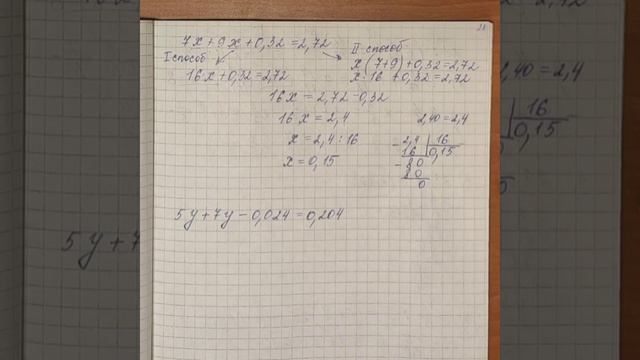 7x + 9x + 0,32 = 2,72
I способ
II способ
16x + 0,32 = 2,72
x (7+9) + 0,32 = 2,72
x · 16 + 0,32 = 2,72
16x = 2,72 - 0,32
16x = 2,4
2,40 = 2,4
x = 2,4 : 16
x = 0,15
- 2,4 | 16
16 | 0,15
- 80
80
0
5y + 7y - 0,024 = 0,204
2,40 = 2,4
16
0,15
5y + 7